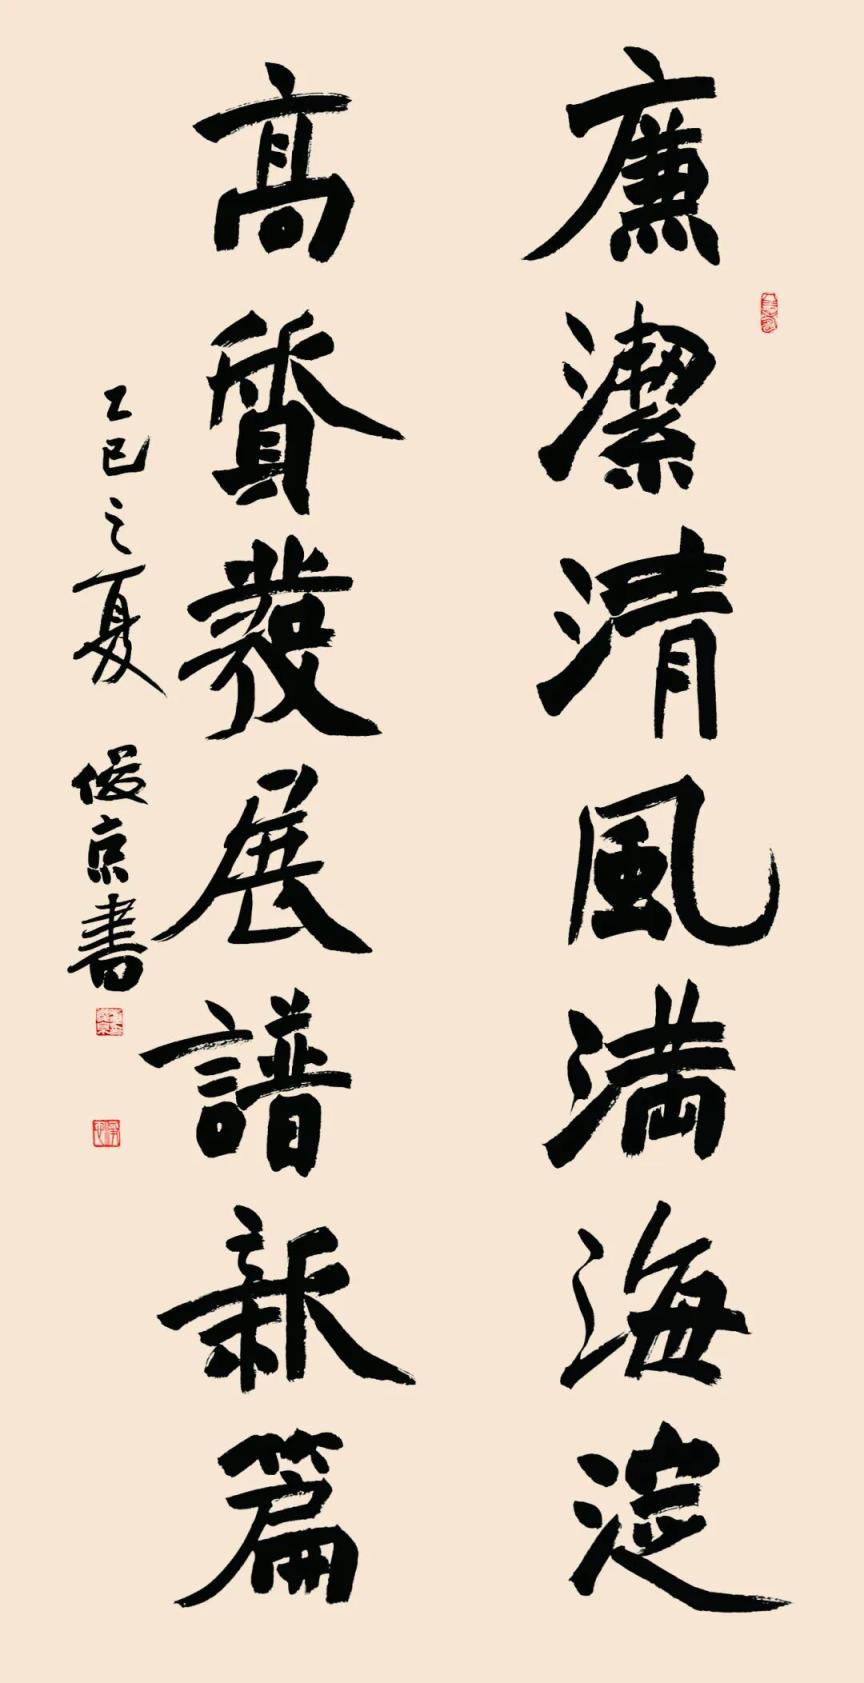 廉潔清風满海淀
高質發展譜新篇
乙巳之夏 俊京書